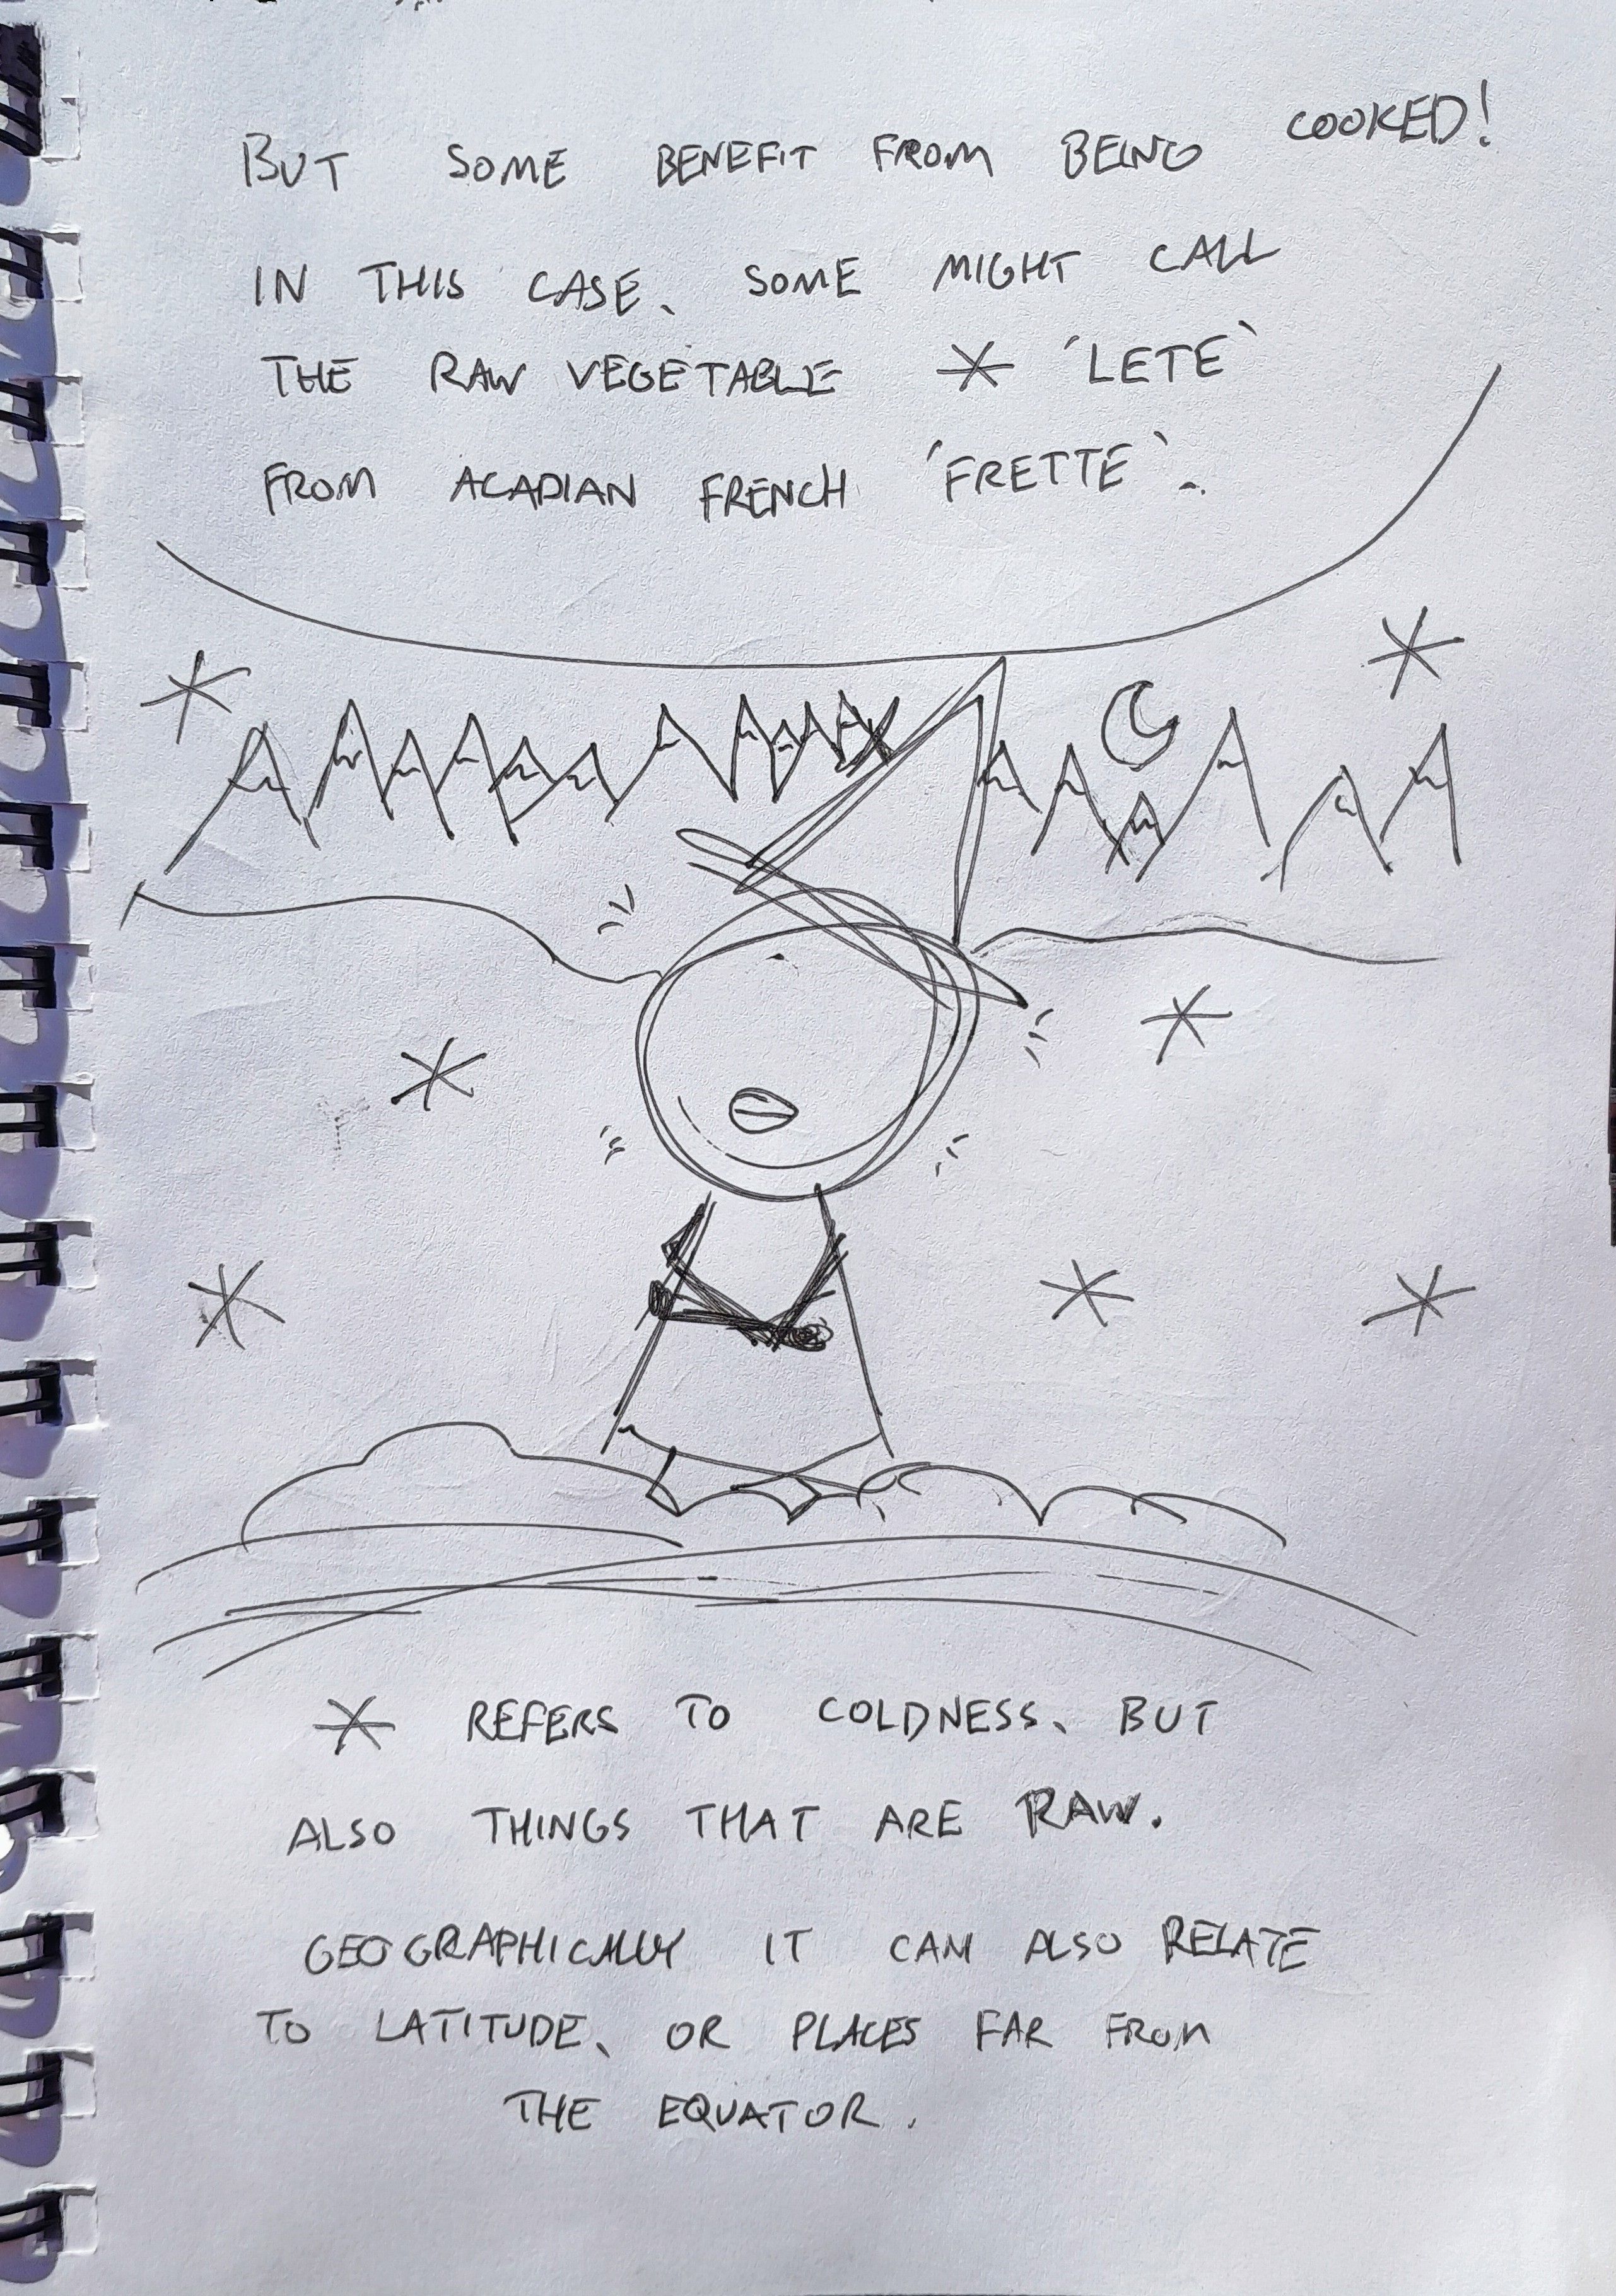 BUT SOME BENEFIT FROM BEING COOKED!
IN THIS CASE, SOME MIGHT CALL
THE RAW VEGETABLE * 'LETE'
FROM ACADIAN FRENCH 'FRETTE'.
* REFERS TO COLDNESS, BUT
ALSO THINGS THAT ARE RAW.
GEOGRAPHICALLY IT CAN ALSO RELATE
TO LATITUDE, OR PLACES FAR FROM
THE EQUATOR.